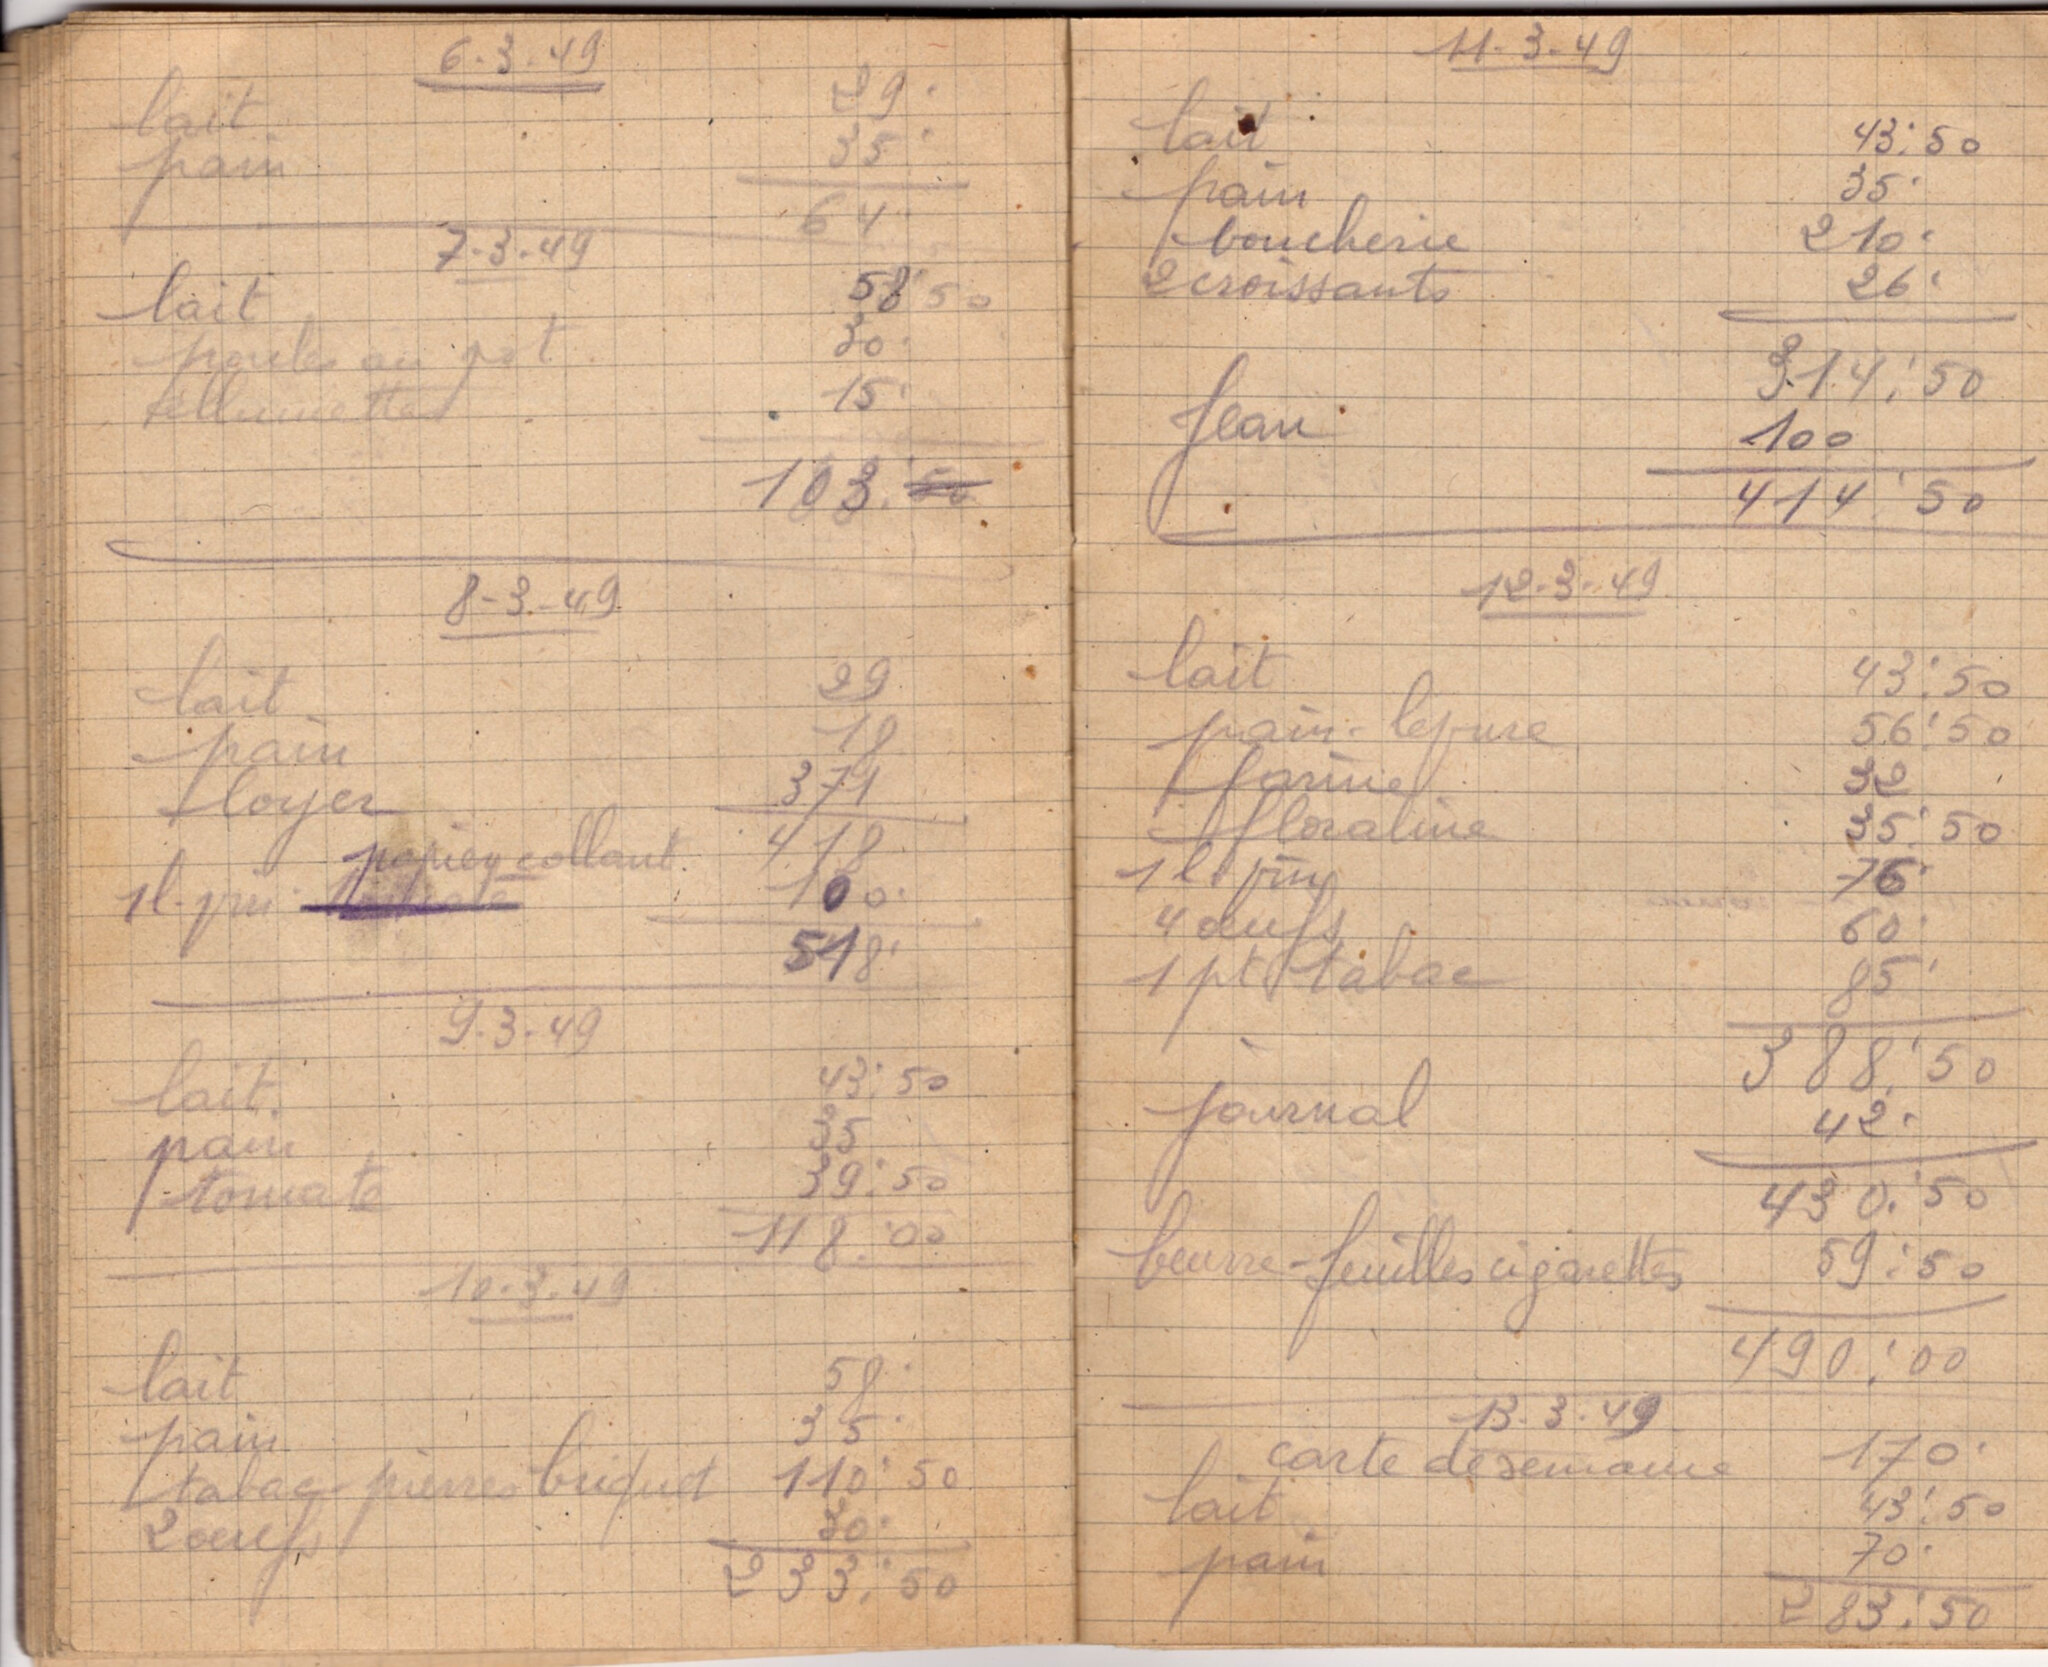 6-3-49
lait 29.
pain 35.
64.
7-3-49
lait 58.50
poules au pot 30.
allumettes 15.
103.
8-3-49
lait 29
pain 18
loyer 371
418
papier collant
1l. pin 100.
518.
9-3-49
lait. 43.50
pain 35
tomate 39.50
118.00
10-3-49
lait 58.
pain 35.
tabac pierres briquet 110.50
2 œufs 30.
233.50
11-3-49
lait 43.50
pain 35.
boucherie 210.
2 croissants 26.
314.50
Jean 100
414.50
12-3-49
lait 43.50
pain - levure 56.50
farine 32
floraline 35.50
1 l. pin 76.
4 œufs 60.
1 pt tabac 85.
388.50
journal 42.
430.50
beurre - feuilles cigarettes 59.50
490.00
13-3-49
carte de semaine 170.
lait 43.50
pain 70.
283.50